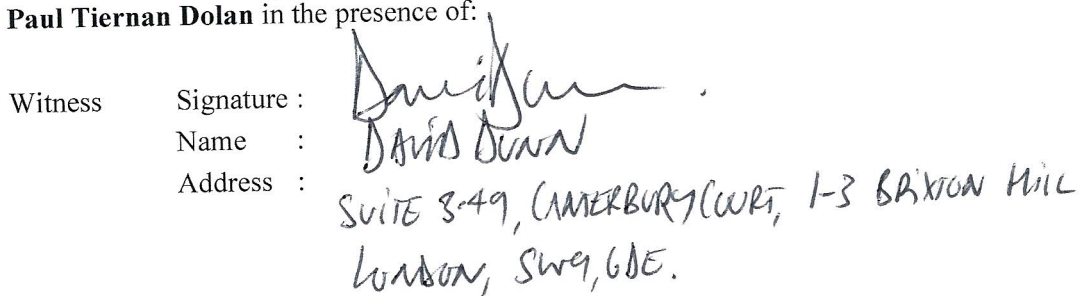 Paul Tiernan Dolan in the presence of:
Witness Signature : David Dunn.
Name : DAVID DUNN
Address :
SUITE 3.49, CANTERBURY COURT, 1-3 BRIXTON HILL
LONDON, SW9, 6DE.